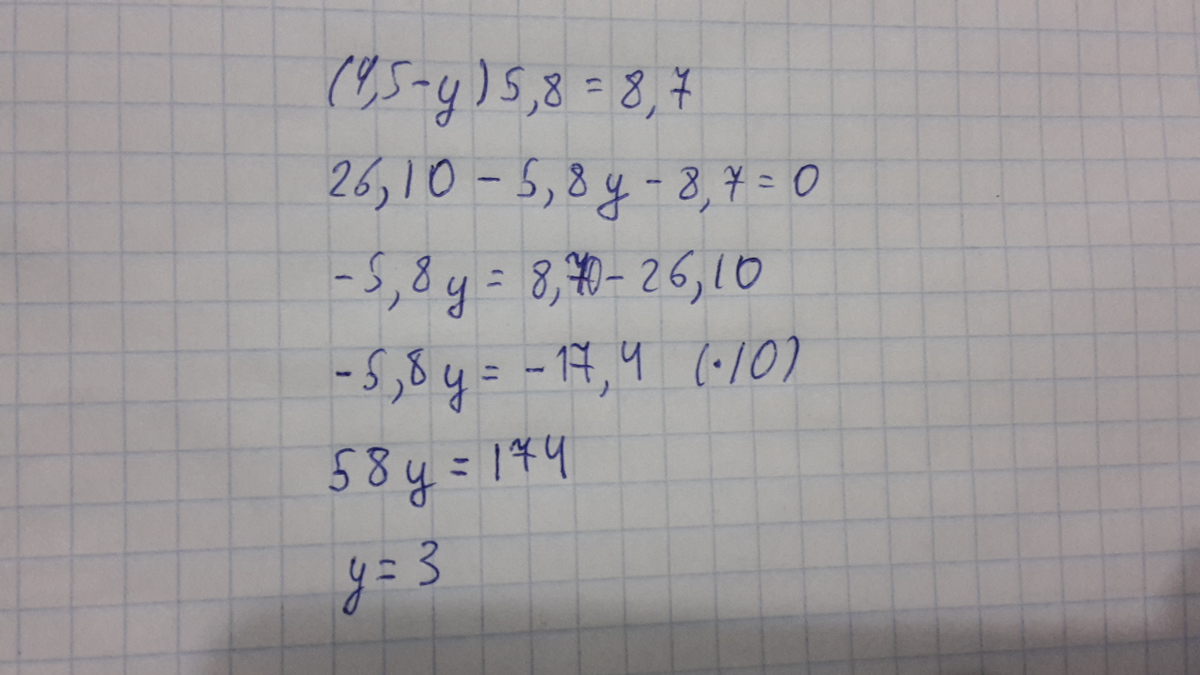 (4,5-y)5,8=8,7
26,10-5,8y-8,7=0
-5,8y=8,70-26,10
-5,8y=-17,4 (·10)
58y=174
y=3